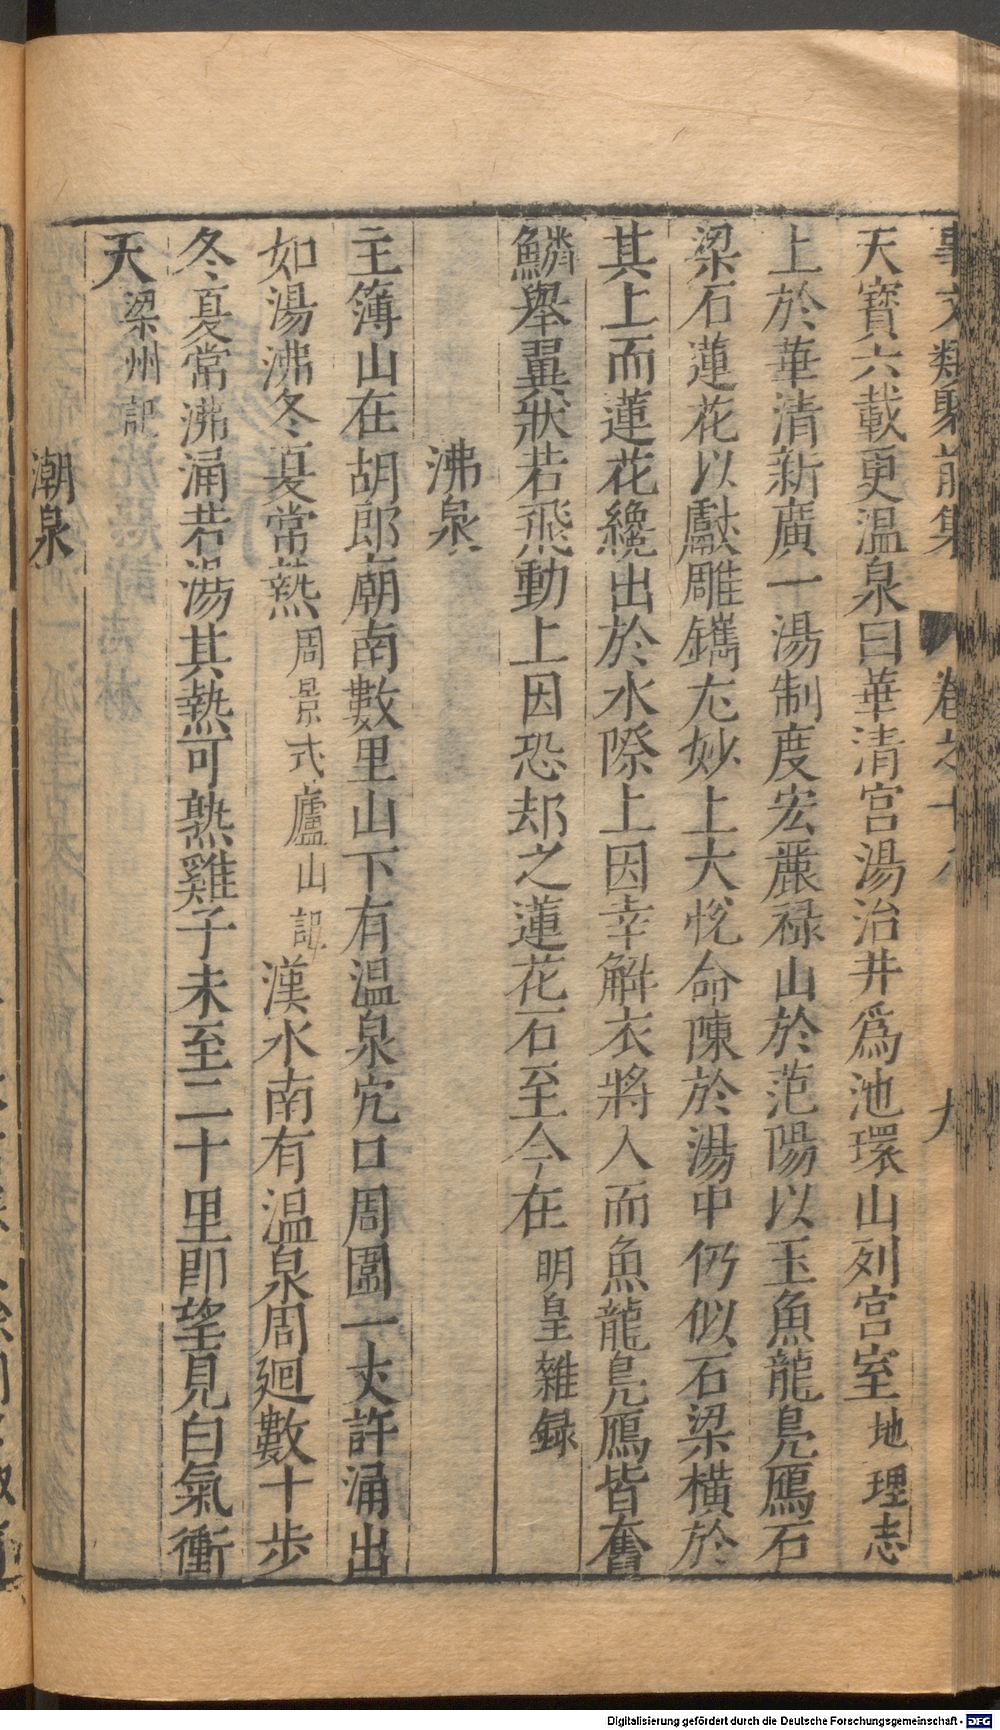 事文類聚前集 卷之十八 九
天寶六載更溫泉曰華清宮湯治井爲池環山列宮室地理志
上於華清新廣一湯制度宏麗祿山於范陽以玉魚龍鳧鴈石
梁石蓮花以獻雕鐫尤妙上大悅命陳於湯中仍似石梁橫於
其上而蓮花纔出於水際上因幸解衣將入而魚龍鳧鴈皆奮
鱗舉翼狀若飛動上因恐却之蓮花石至今在明皇雜録
沸泉
主簿山在胡郎廟南數里山下有溫泉穴口周圍一丈許涌出
如湯沸冬夏常熱周景式廬山記漢水南有溫泉周廻數十步
冬夏常沸涌若湯其熱可熟雞子未至二十里即望見白氣衝
天梁州記
潮泉
Digitalisierung gefördert durch die Deutsche Forschungsgemeinschaft - DFG